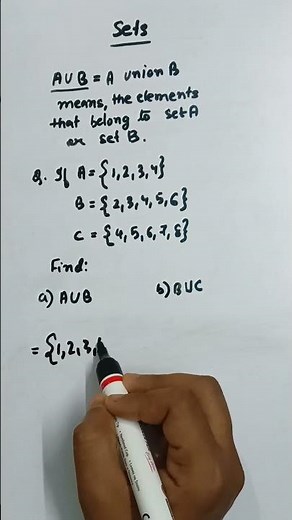 Sets
A∪B = A union B
means, the elements
that belong to set A
or set B.
Q. If A = {1,2,3,4}
B = {2,3,4,5,6}
C = {4,5,6,7,8}
Find:
a) A∪B b) B∪C
= {1,2,3,